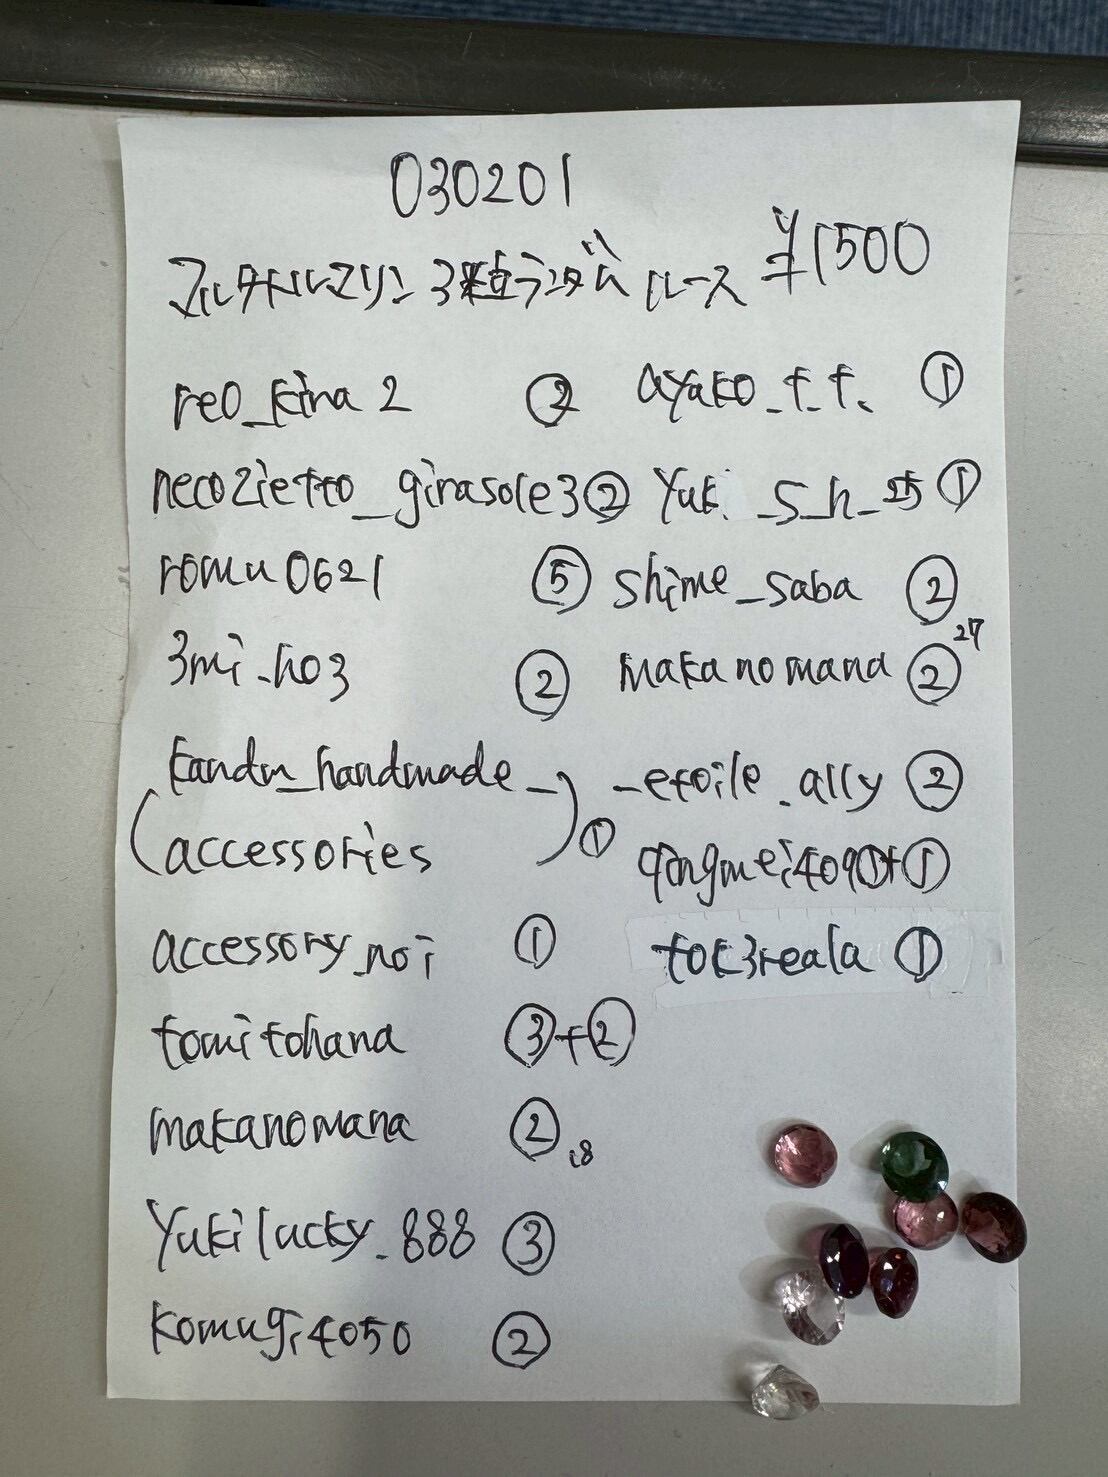 030201
マルチトルマリン3粒ランダムルース ¥1500
reo_kina2 ②
necozietto_girasole3 ②
romu0621 ⑤
3mi_ho3 ②
kandm_handmade_
accessories ①
accessory_noi ①
tomitohana ③+②
makanomana ② 18
Yukilucky_888 ③
komugi4050 ②
ayako_f.f. ①
Yuki_s_h_25 ①
shime_saba ②
makanomana ② 27
_etoile_ally ②
tok3reala ①